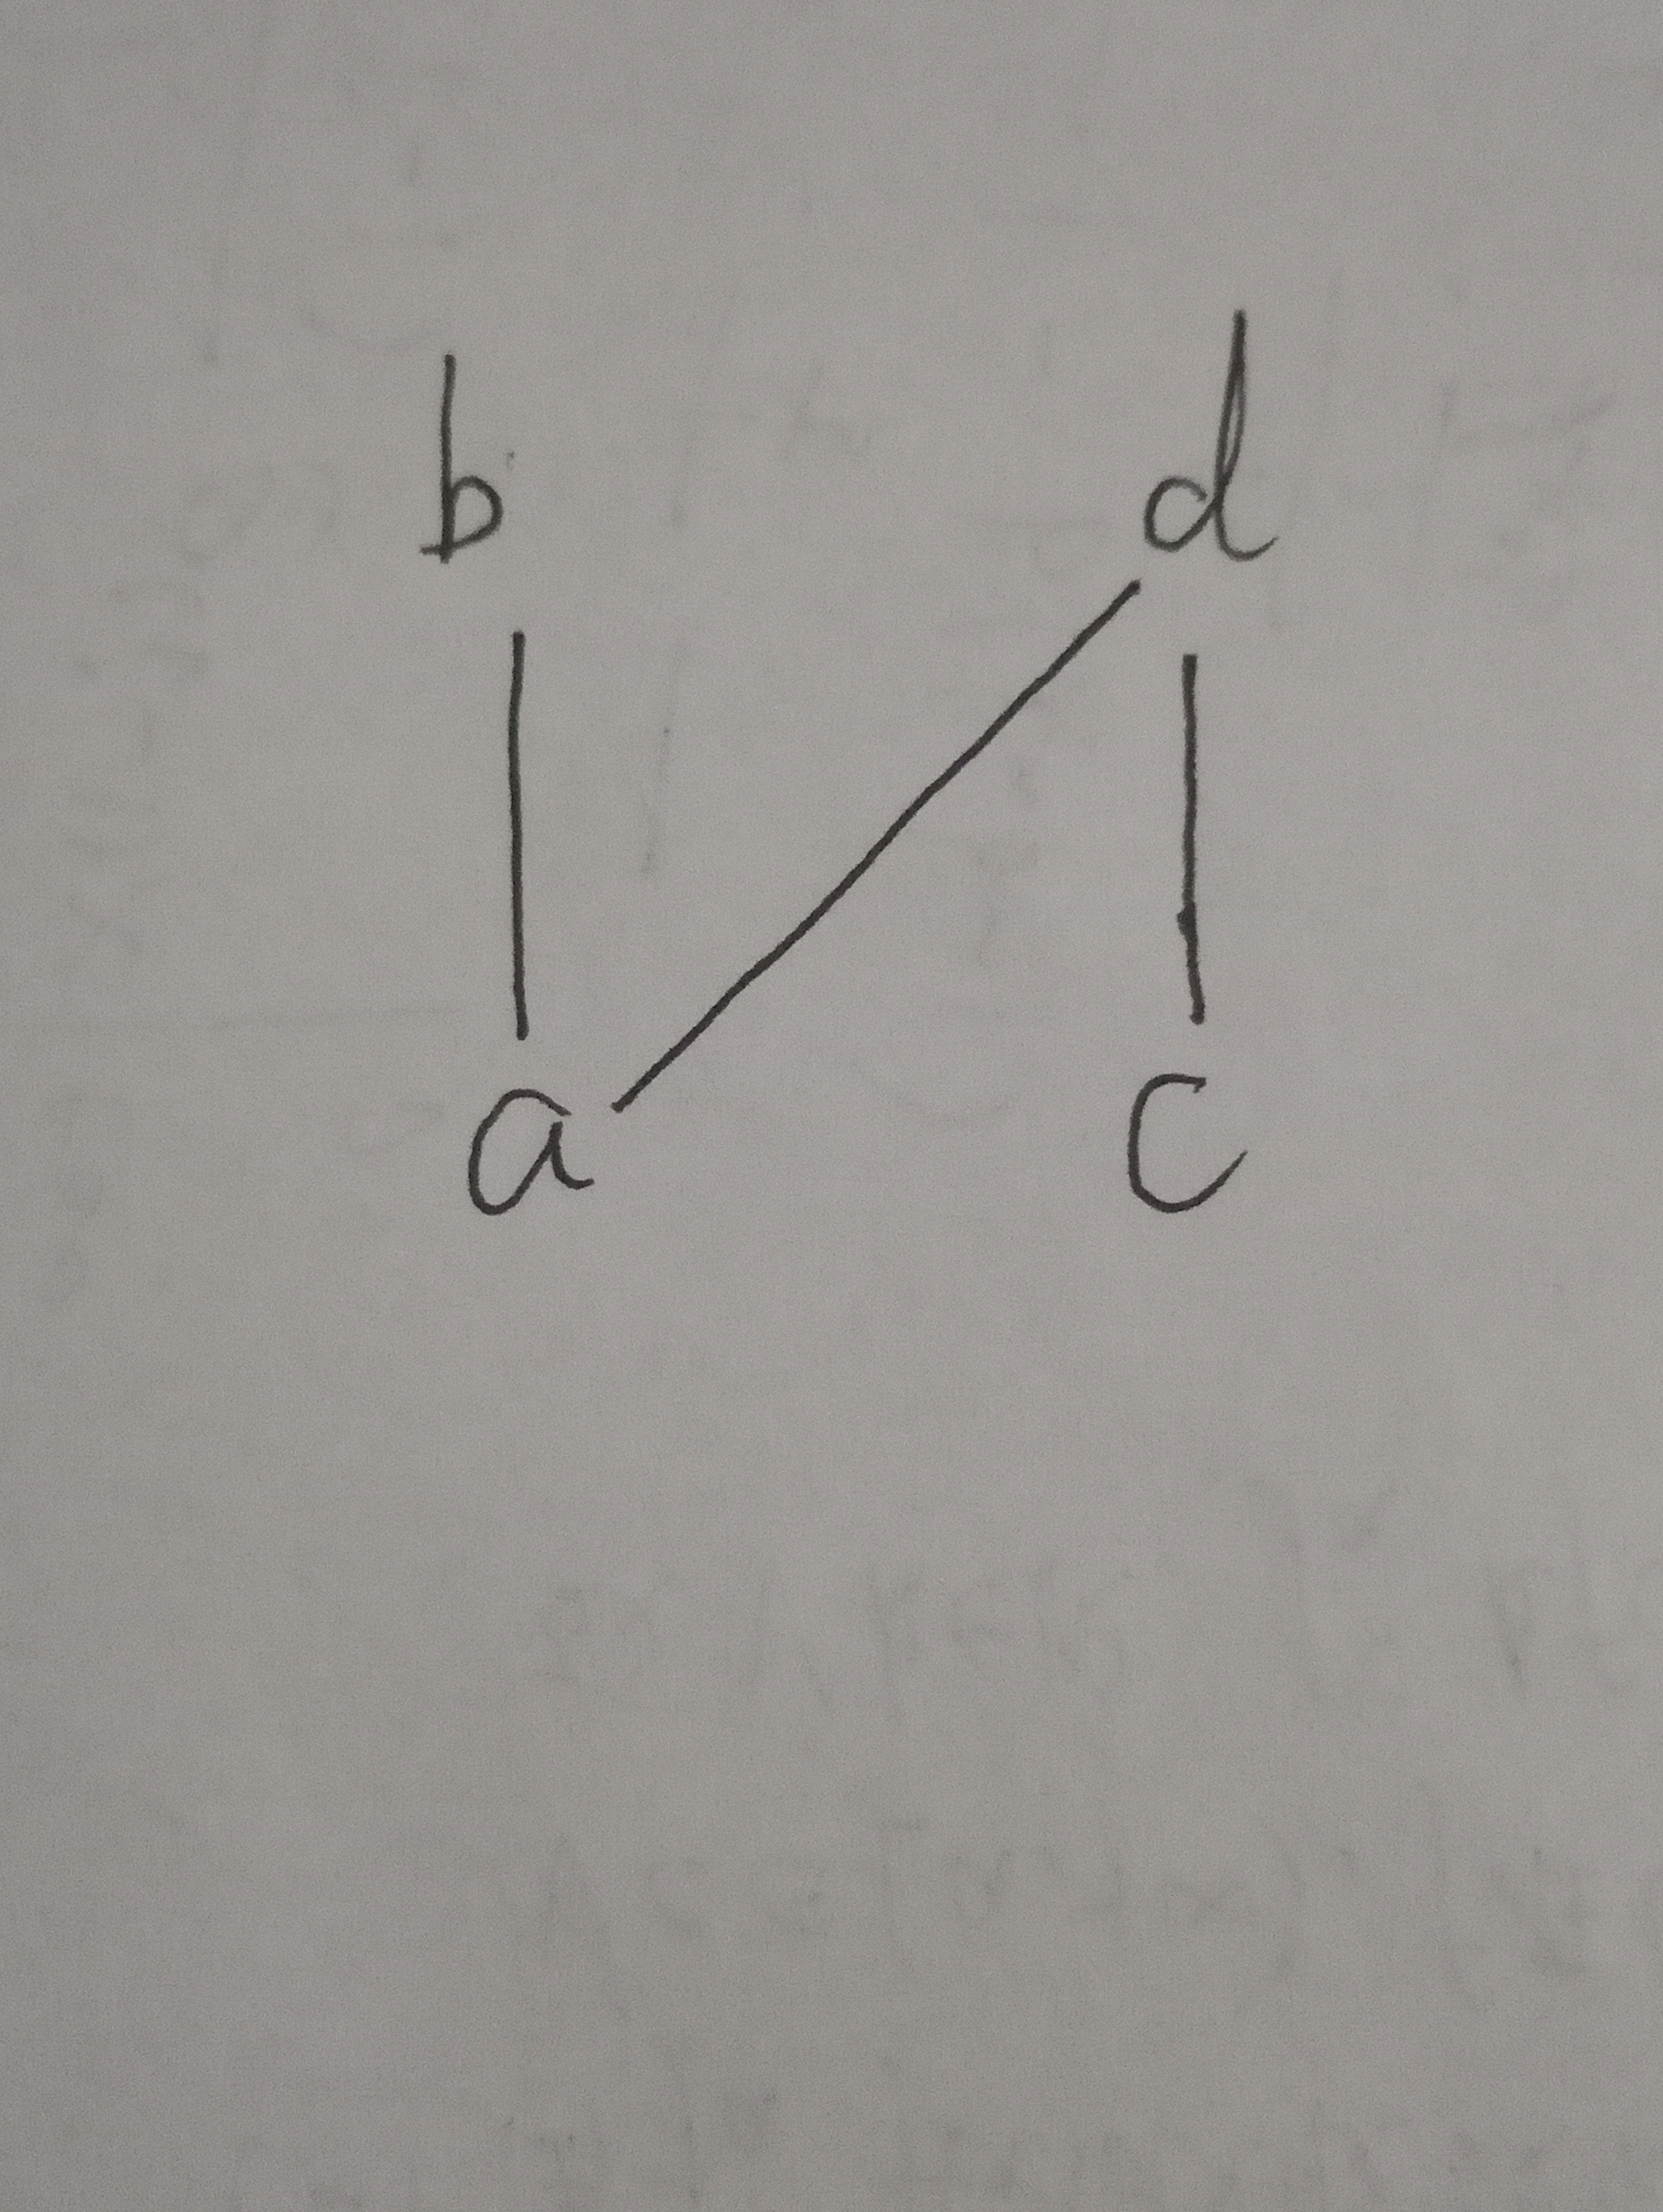 b d
a c